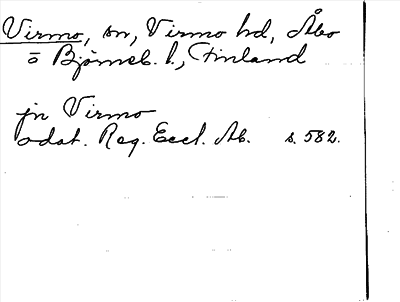 Virmo, sn, Virmo hd, Åbo
o Björneb. l., Finland
jn Virmo
odat. Reg. Eccl. Ab. s. 582.